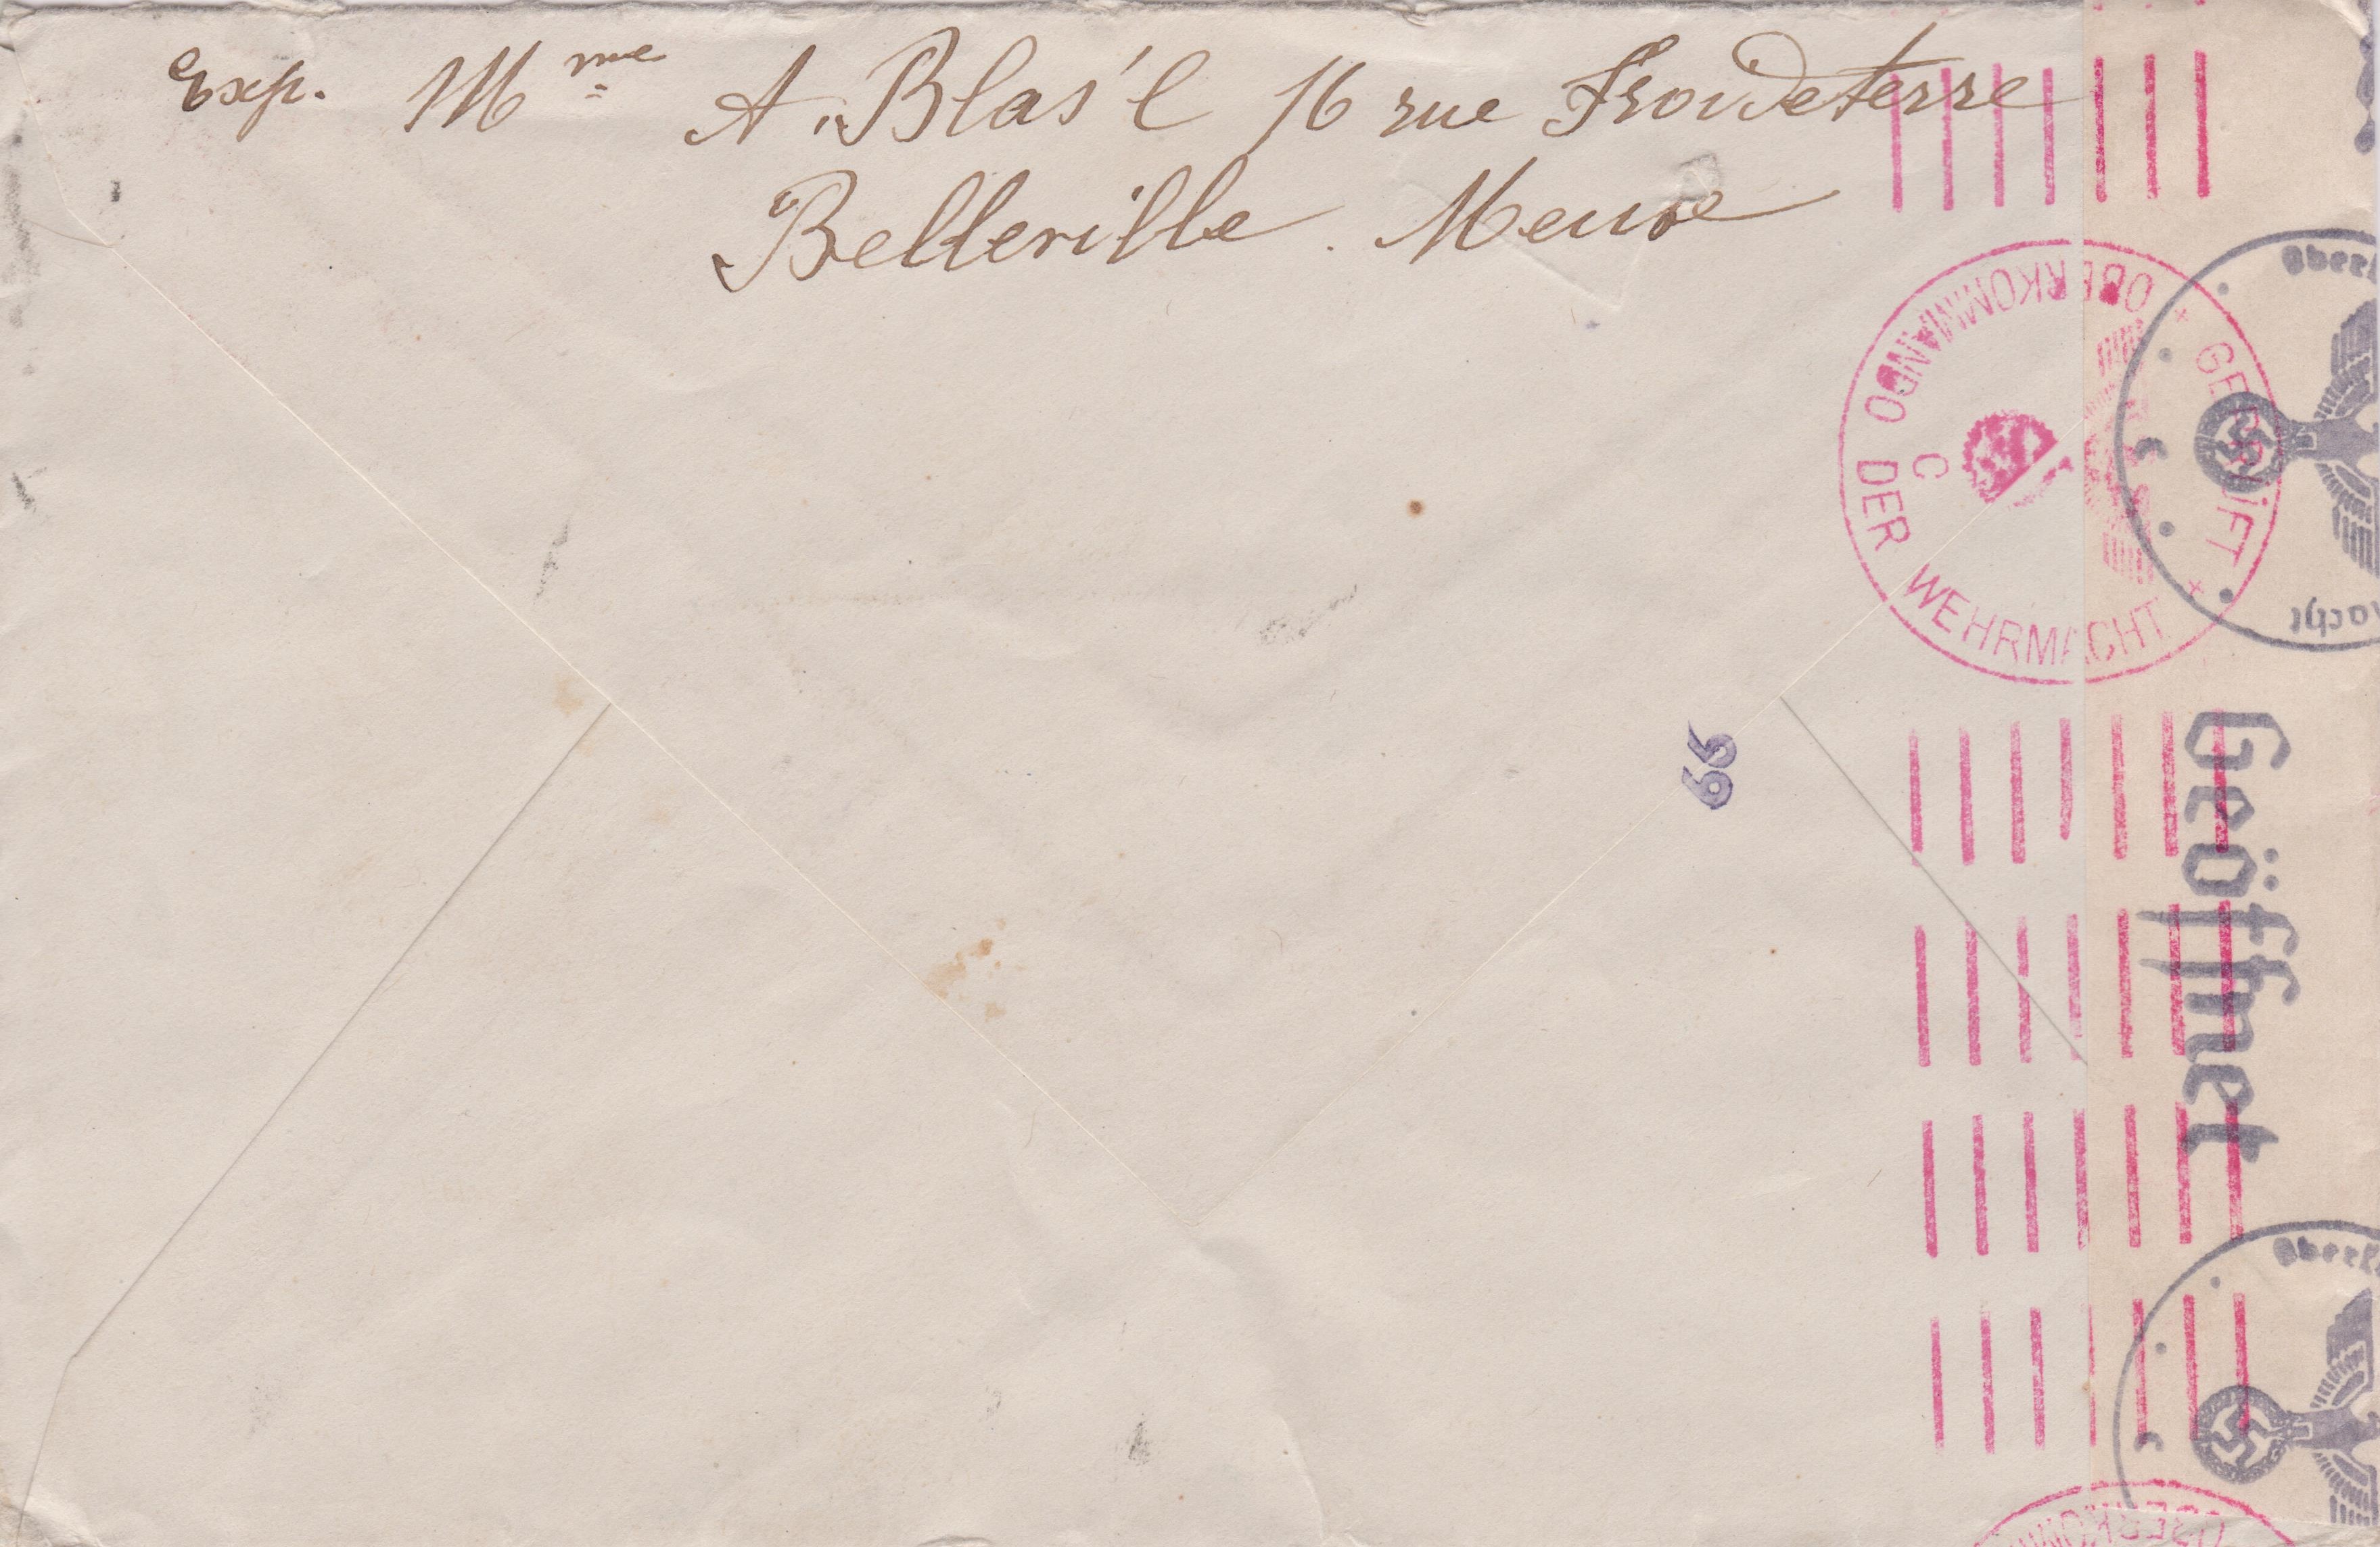 Exp. Mme A. Blas'l 16 rue Froideterre
Belleville. Meuse
OBERKOMMANDO DER WEHRMACHT
+ GEPRÜFT +
C
Oberk
acht
C
66
Geöffnet
Oberk
C
OBERKOM